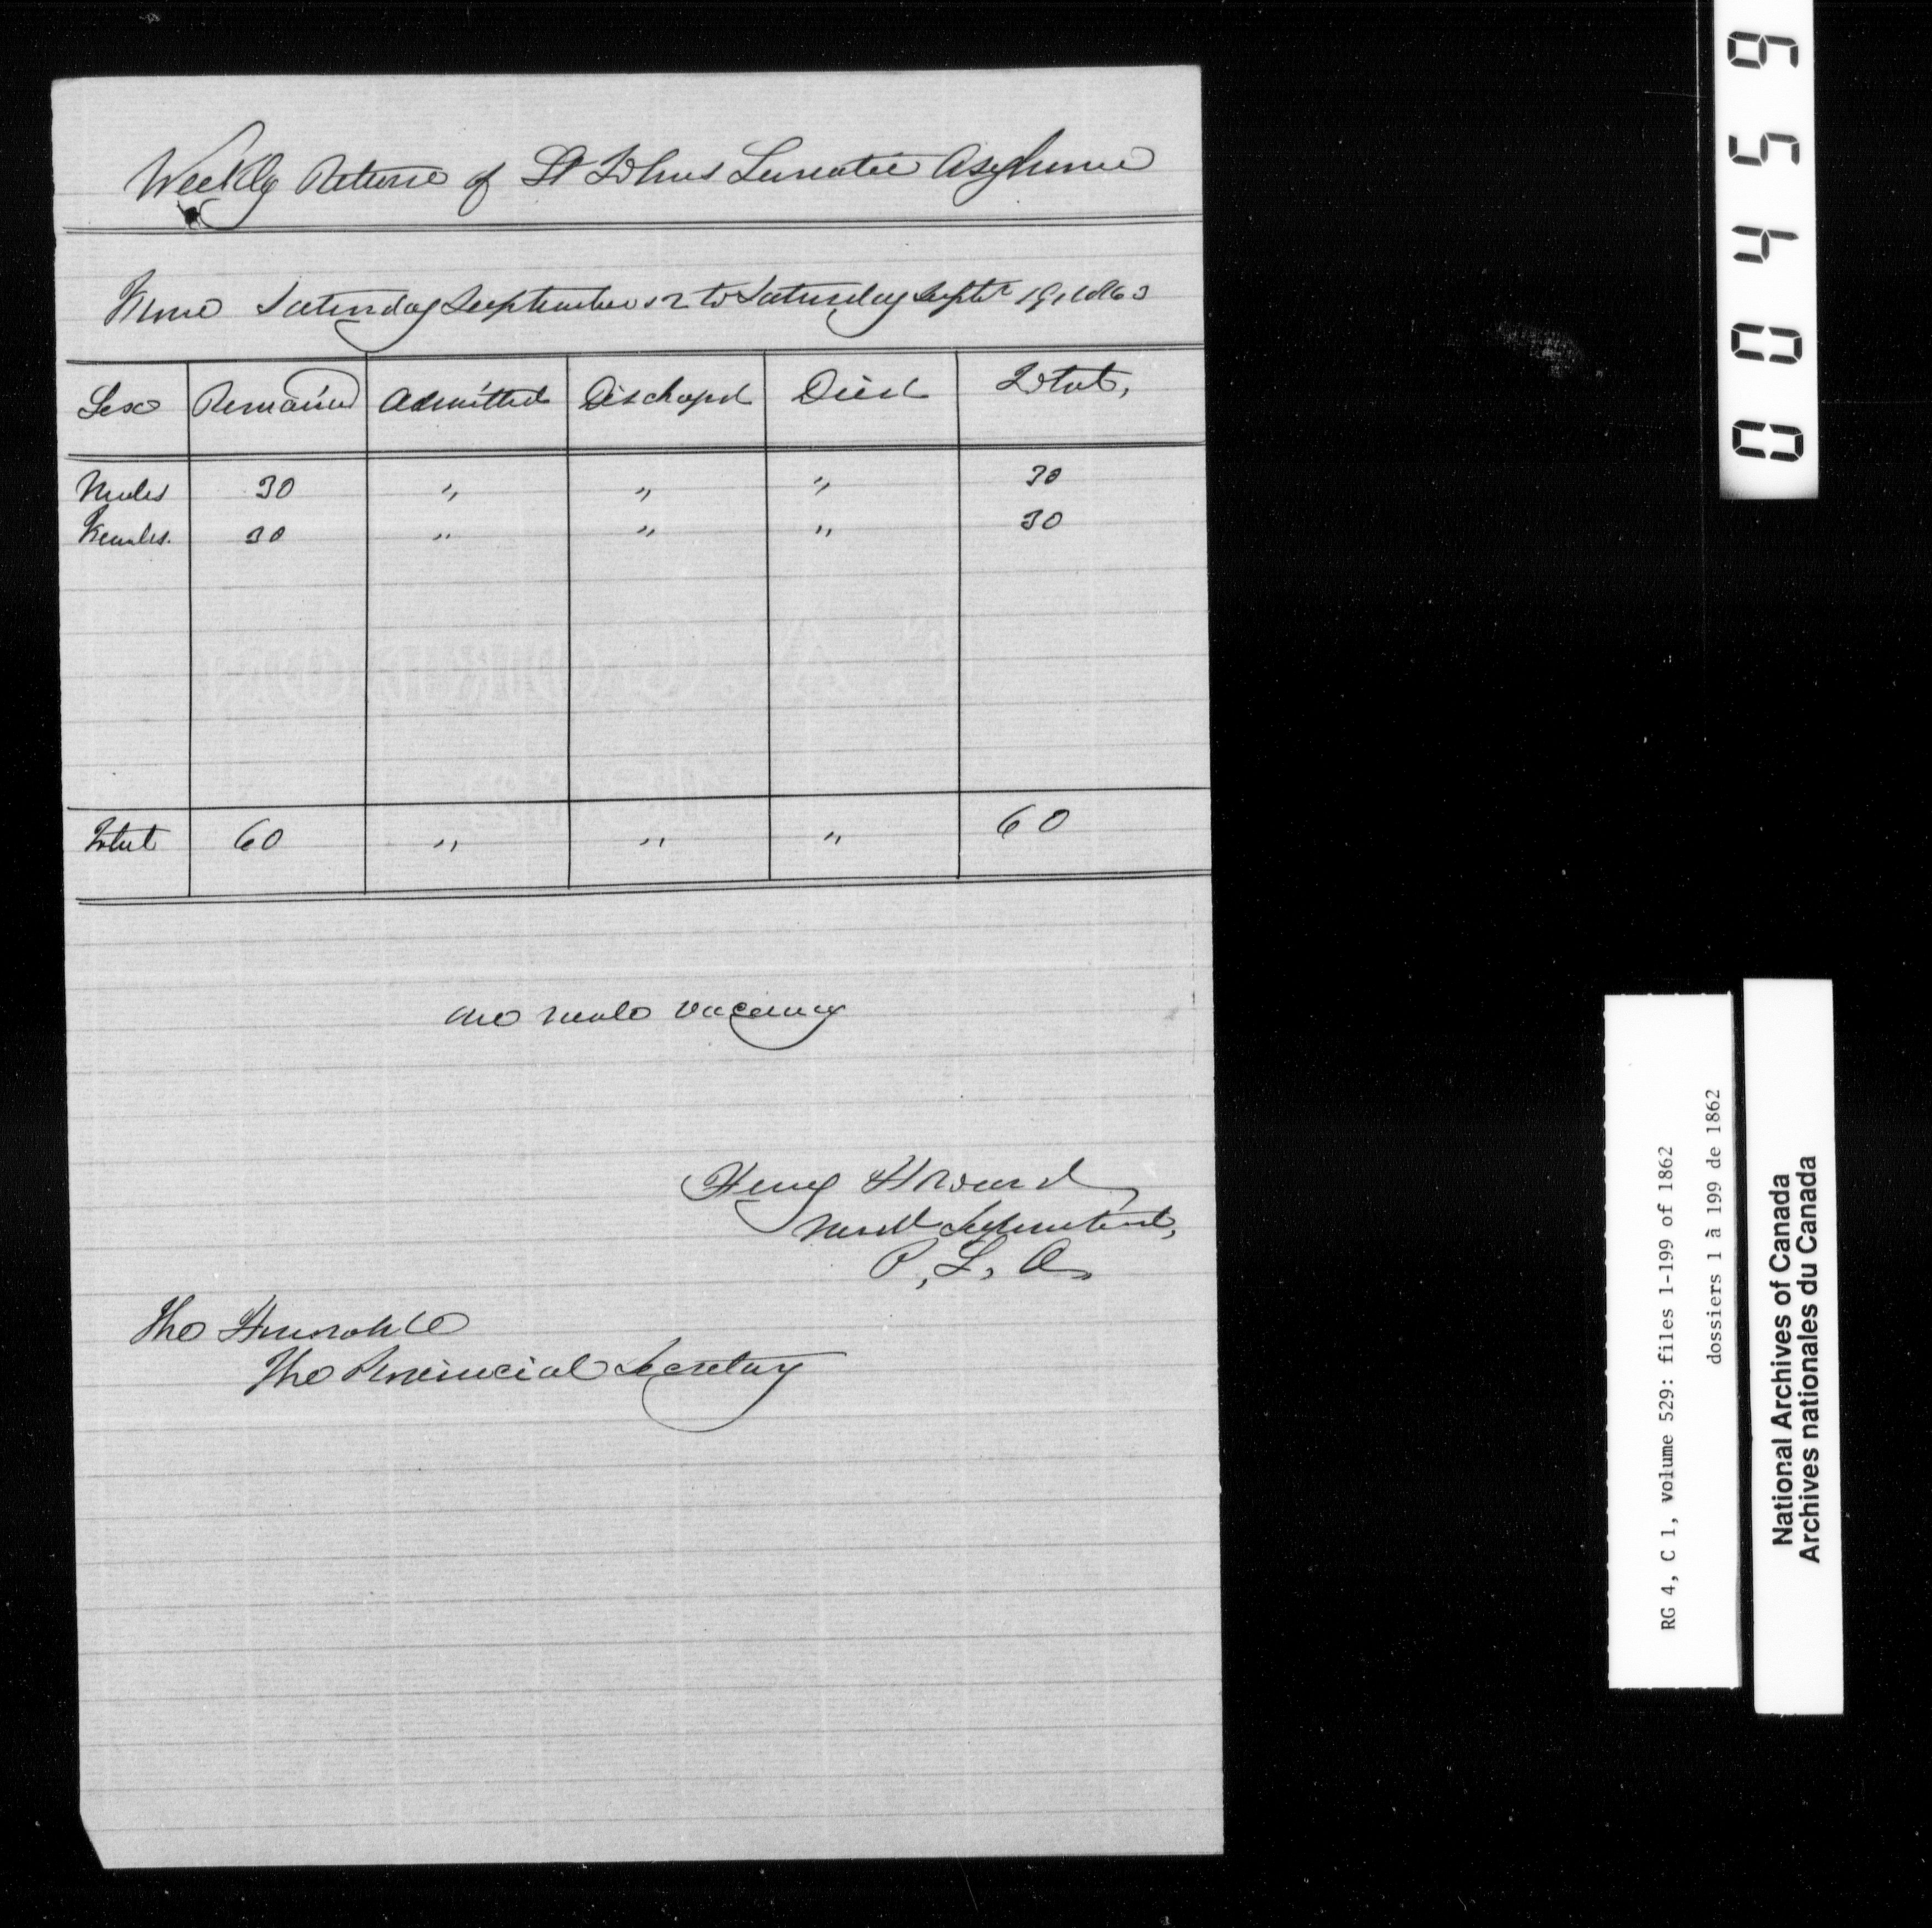 Weekly Return of St Johns Lunatic Asylum
From Saturday September 12 to Saturday Septr 19, 1863
Sex Remained Admitted Discharged Died Total,
Males 30 " " " 30
Females. 30 " " " 30
Total 60 " " " 60
one male vacancy
Henry Howard
Medl Superintendt,
P, L, A,
The Honorable
The Provincial Secretary
00459
RG 4, C 1, volume 529: files 1-199 of 1862
dossiers 1 à 199 de 1862
National Archives of Canada
Archives nationales du Canada